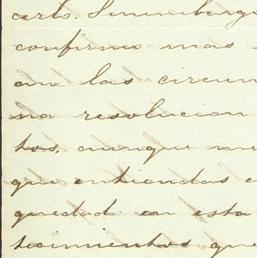 arlo. Sinembargo
confirmo mas
en las circun
na resolucion
tos, aunque me
que entiendas e
quedad en esta
tecimientos que